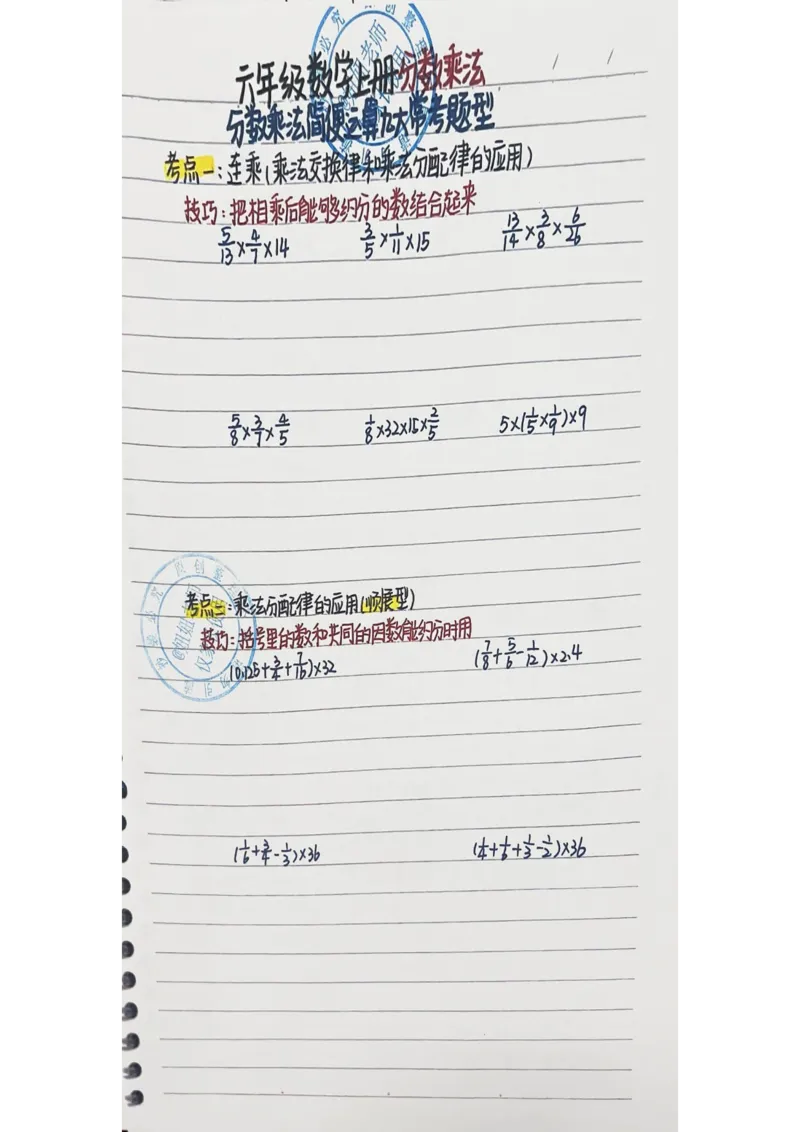 六年级数学上册分数乘法
分数乘法简便运算九大常考题型
考点一:连乘(乘法交换律和乘法分配律的应用)
技巧:把相乘后能够约分的数结合起来
5/13×4/7×14 3/5×1/11×15 13/14×3/8×6/26
5/8×3/7×4/5 1/8×32×15×2/5 5×(1/5×1/9)×9
考点二:乘法分配律的应用(顺展型)
技巧:括号里的数和共同的因数能约分时用
(0.125+3/4+7/16)×32 (7/8+5/6-1/12)×2.4
(1/6+3/4-1/3)×36 (1/4+1/6+1/3-1/2)×36